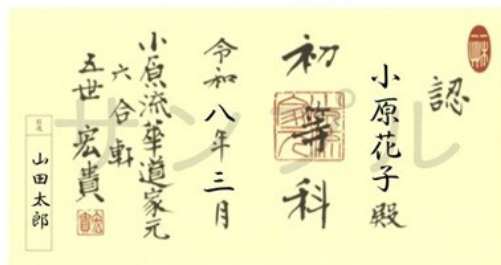 認
小原花子 殿
初等科
令和八年三月
小原流華道家元
六合軒
五世 宏貴
山田太郎
サンプル